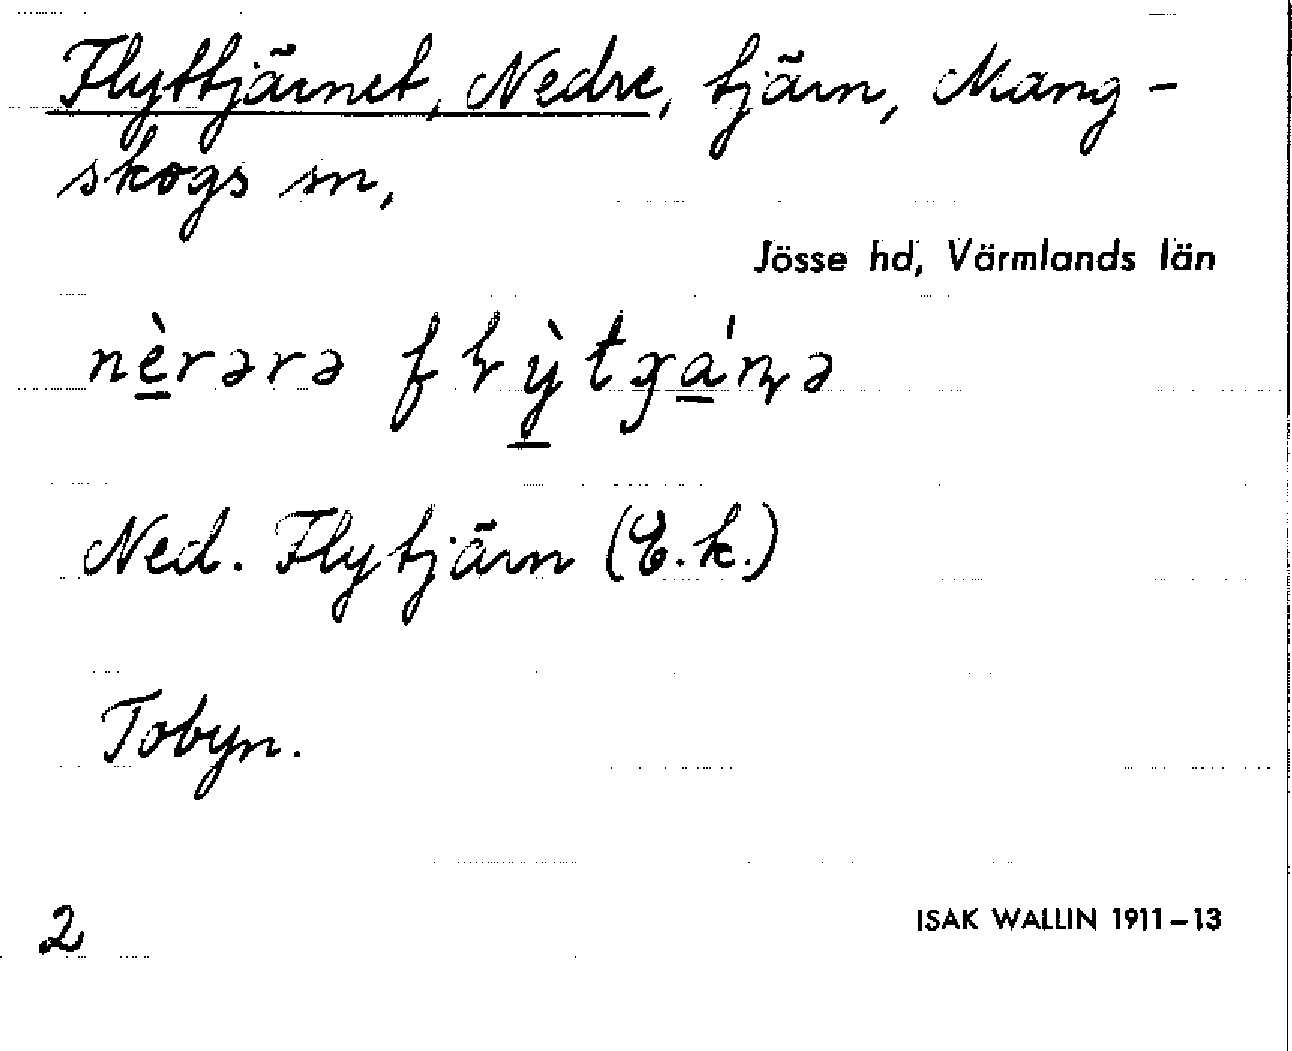 Flyttjärnet, Nedre, tjärn, Mang-
skogs sn,
Jösse hd, Värmlands län
nèrərə
Ned. Flytjärn (E.k.)
Tobyn.
2
ISAK WALLIN 1911–13